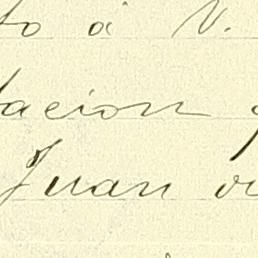 to á V.
tacion
Juan